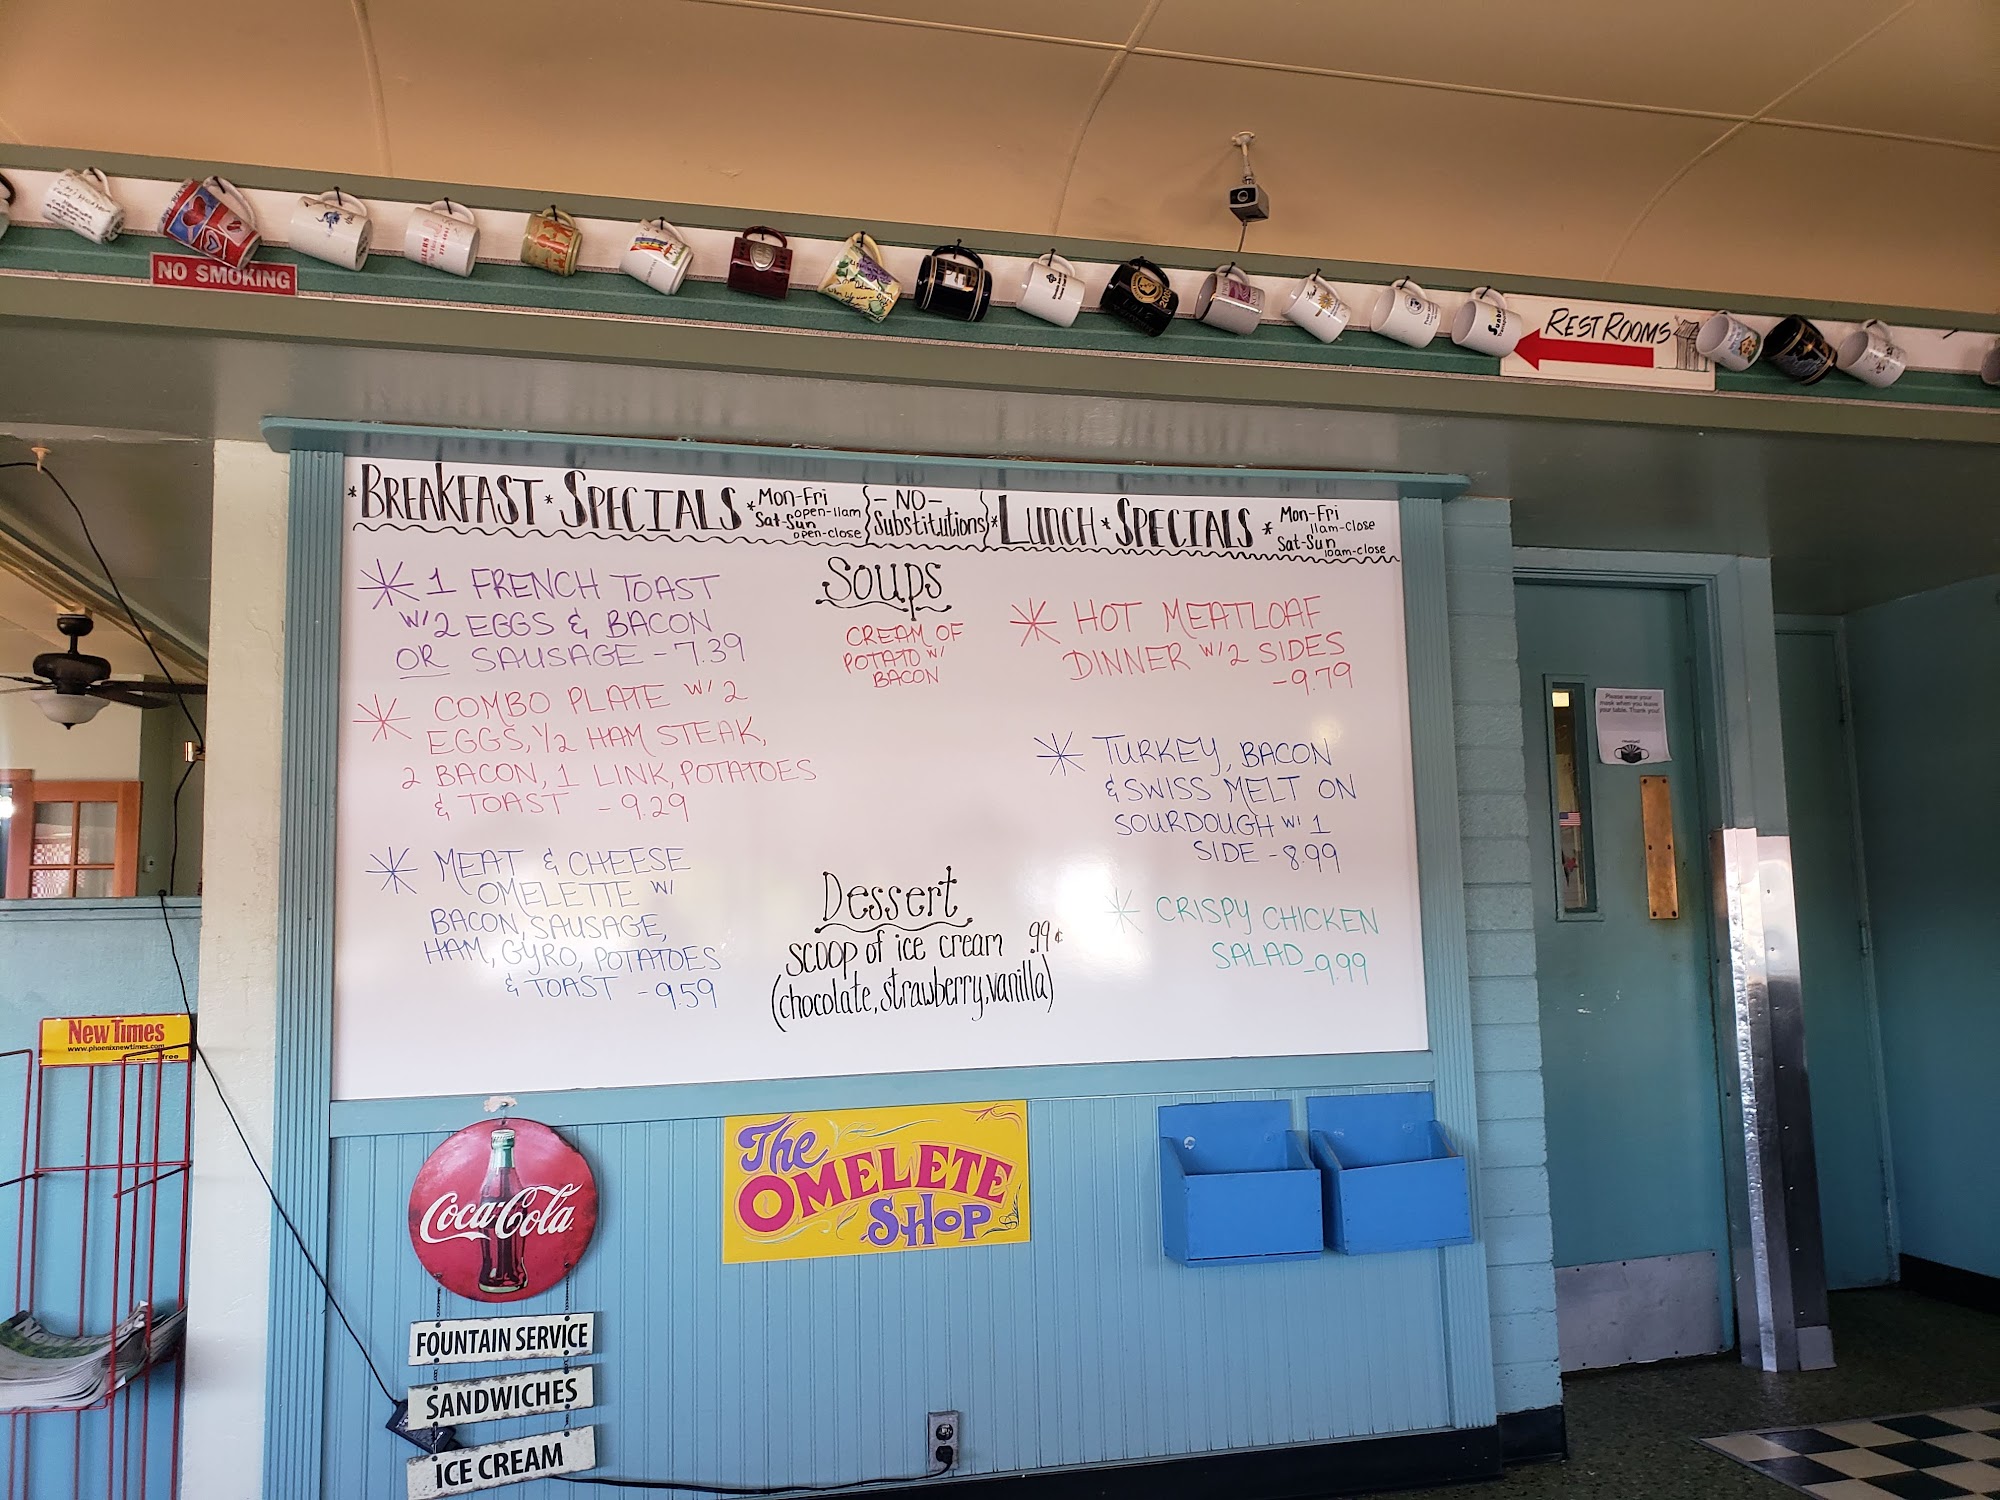 NO SMOKING
REST ROOMS
*BREAKFAST * SPECIALS * Mon-Fri open-11am Sat-Sun open-close
-NO- Substitutions
*LUNCH * SPECIALS * Mon-Fri 11am-close Sat-Sun 10am-close
* 1 FRENCH TOAST
W/ 2 EGGS & BACON
OR SAUSAGE - 7.39
* COMBO PLATE W/ 2
EGGS, 1/2 HAM STEAK,
2 BACON, 1 LINK, POTATOES
& TOAST - 9.29
* MEAT & CHEESE
OMELETTE W/
BACON, SAUSAGE,
HAM, GYRO, POTATOES
& TOAST - 9.59
SOUPS
CREAM OF
POTATO W/
BACON
Dessert
scoop of ice cream .99¢
(chocolate, strawberry, vanilla)
* HOT MEATLOAF
DINNER W/ 2 SIDES
- 9.79
* TURKEY, BACON
& SWISS MELT ON
SOURDOUGH W/ 1
SIDE - 8.99
* CRISPY CHICKEN
SALAD - 9.99
Please wear your
mask when you leave
your table. Thank you!
New Times
www.phoenixnewtimes.com
free
Coca-Cola
FOUNTAIN SERVICE
SANDWICHES
ICE CREAM
The
OMELETE
SHOP